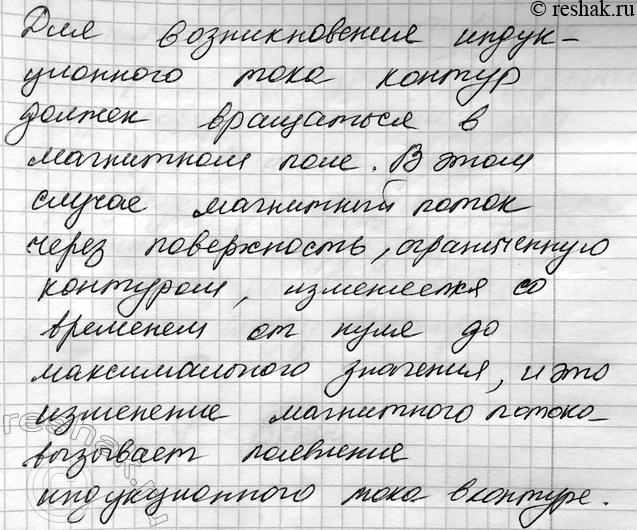 © reshak.ru
Для возникновения индук-
ционного тока контур
должен вращаться в
магнитном поле. В этом
случае магнитный поток
через поверхность, ограниченную
контуром, изменяется со
временем от нуля до
максимального значения, и это
изменение магнитного потока
вызывает появление
индукционного тока в контуре.